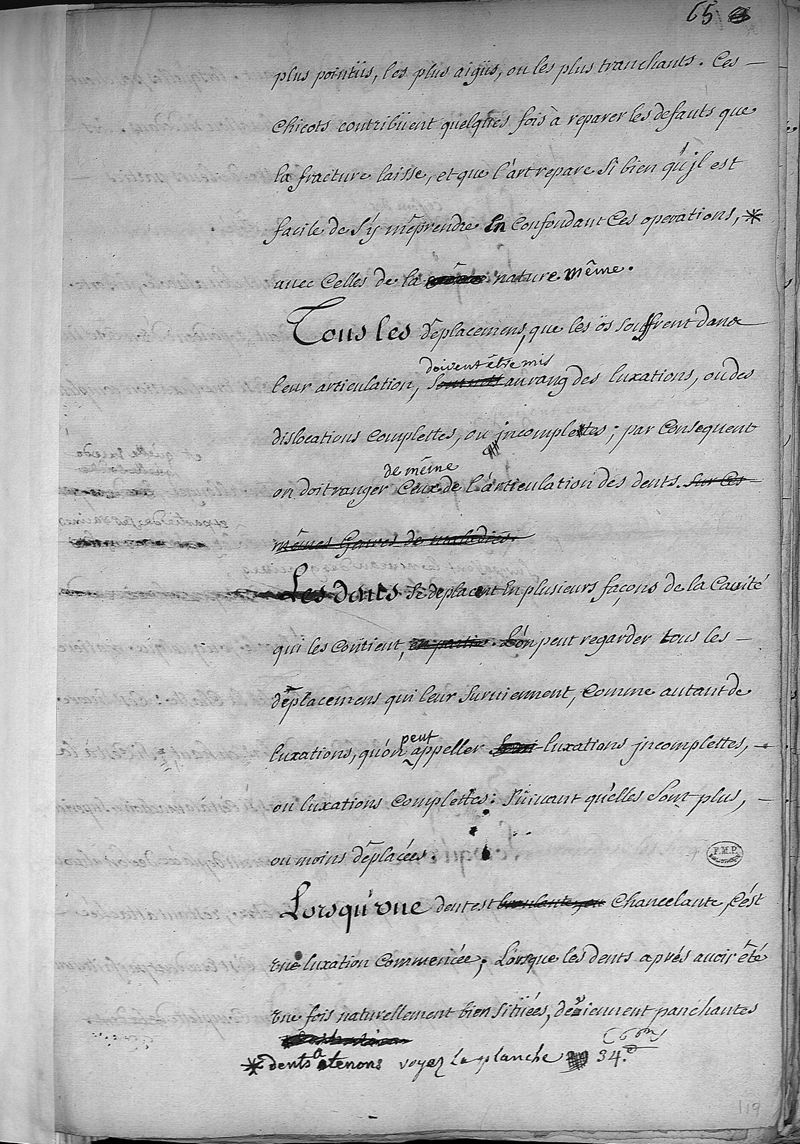 65
plus pointüs, les plus aigüs, ou les plus tranchants. Ces —
Chicots contribüent quelques fois à reparer les defauts que
la fracture laisse, et que l'art repare si bien qu'jl est
facile de s'y méprendre en confondant Ces operations, *
avec Celles de la nature même.
Tous les déplacemens, que les ôs souffrent dans
doivent être mis
leur articulation, sont mis au rang des luxations, ou des
dislocations complettes, ou jncomplettes; par Consequent
de même
on doit ranger Ceux de l'articulation des dents. sur Ces —
mêmes Genres de maladies.
Les dents se deplacent en plusieurs façons de la Cavité
qui les contient, en partie. L'on peut regarder tous les —
déplacemens qui leur surviennent, Comme autant de
peut
luxations, qu'on appeller luxations jncomplettes, —
ou luxations Complettes: suivant qu'elles sont plus, —
ou moins déplacées.
F.M.P.
Lorsqu'une dent est Chancelante, C'est
une luxation Commencée; Lorsque les dents aprés avoir été
une fois naturellement bien sitüées, deviennent panchantes
* dents a tenons voyez la planche 34.e
119